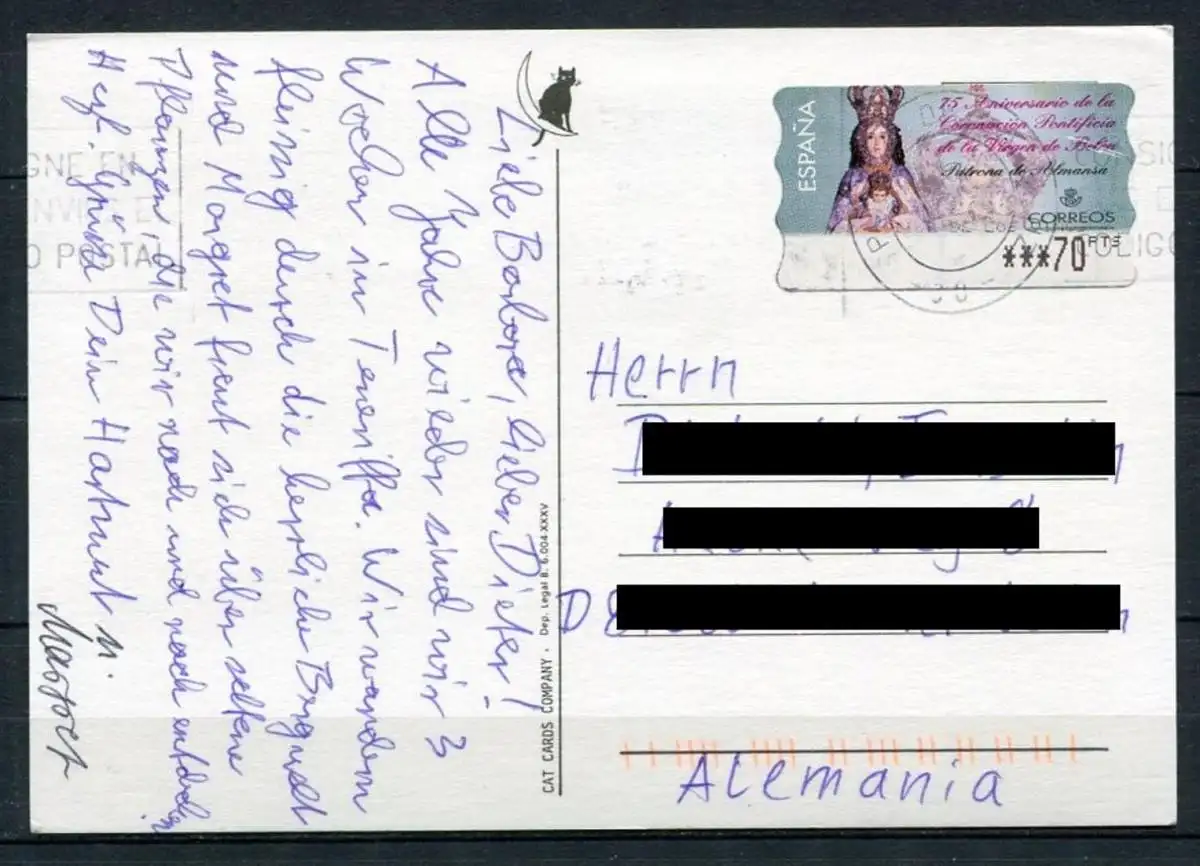 Liebe Barbara, lieber Dieter!
Alle Jahre wieder sind wir 3
Wochen in Teneriffa. Wir wandern
fleißig durch die herrliche Bergwelt
und Margret freut sich über seltene
Pflanzen, die wir nach und nach entdecken
Herzl. Grüße Dein Hartmut u.
Margret
CAT CARDS COMPANY · Dep. Legal B. 6.004-XXXV
ESPAÑA
75 Aniversario de la
Coronación Pontificia
de la Virgen de Belén
Patrona de Almansa
CORREOS
***70 PTS
GNE EN
ENVIE E
O POSTAL
Herrn
D
Alemania